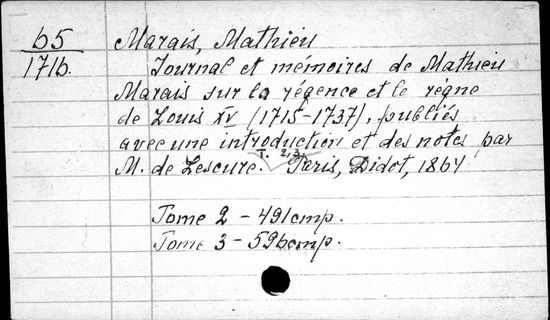 b5 Marais, Mathieu
171b. Journal et mémoires de Mathieu
Marais sur la régence et le règne
de Louis XV (1715-1737), publiés
avec une introduction et des notes par
M. de Lescure. T. 2,3 Paris, Didot, 1864
Tome 2 - 491стр.
Tome 3 - 596стр.